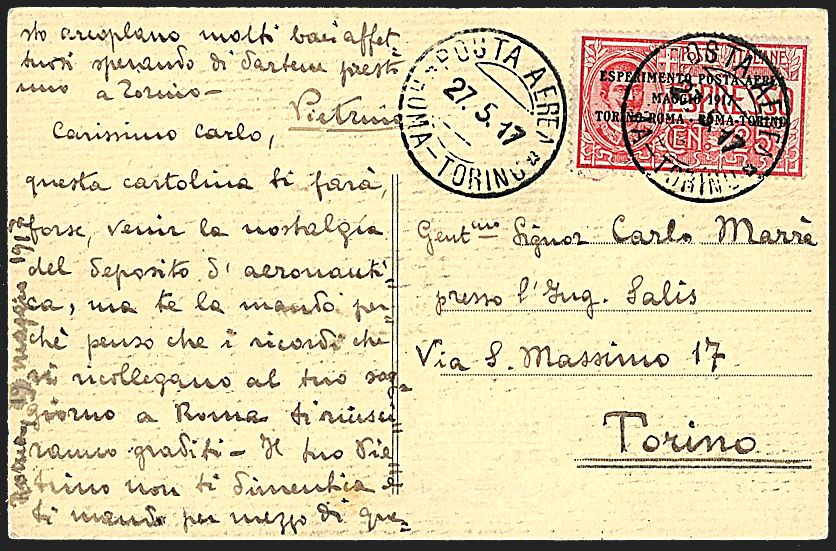 sto areoplano molti baci affet-
tuosi sperando di darteli presti
simo a Torino –
Pietrino
Carissimo Carlo,
questa cartolina ti farà,
forse, venir la nostalgia
del deposito d'aeronauti=
ca, ma te la mando per=
chè penso che i ricordi che
si ricollegano al tuo sog=
giorno a Roma ti riusci
ranno graditi – Il tuo Pie
trino non ti dimentica e
ti manda per mezzo di que=
Roma, 19 maggio 1917
POSTA AEREA
27.5.17
ROMA-TORINO
POSTE ITALIANE
ESPERIMENTO POSTA AEREA
MAGGIO 1917
TORINO-ROMA · ROMA-TORINO
CEN. 25
POSTA AEREA
27.5.17
ROMA-TORINO
Gent.mo Signor Carlo Marrè
presso l'Ing. Salis
Via S. Massimo 17
Torino